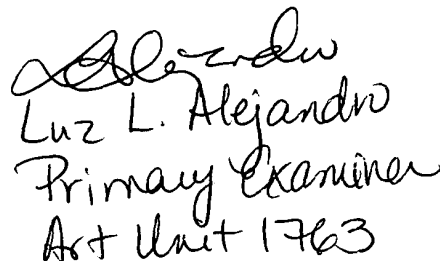 LAlejandro
Luz L. Alejandro
Primary Examiner
Art Unit 1763